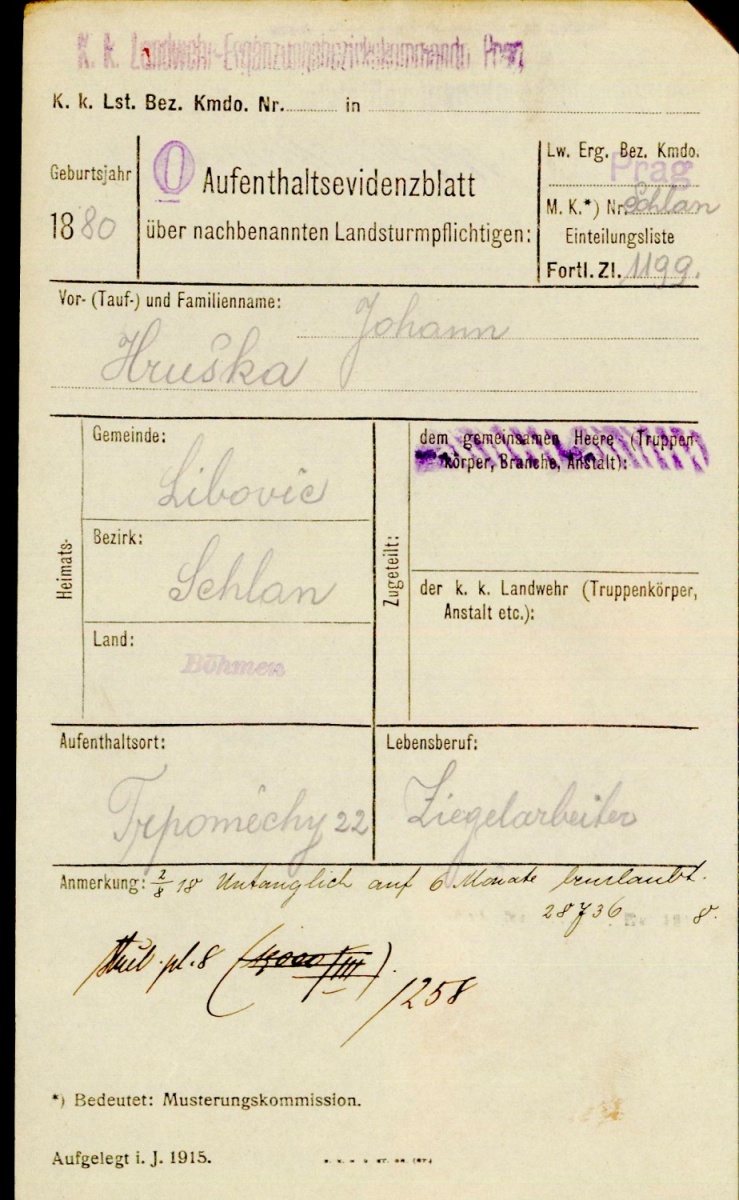 K. k. Landwehr-Ergänzungsbezirkskommando Prag
K. k. Lst. Bez. Kmdo. Nr. in
Geburtsjahr
1880
O Aufenthaltsevidenzblatt
über nachbenannten Landsturmpflichtigen:
Lw. Erg. Bez. Kmdo.
Prag
M. K.*) Nr. Schlan
Einteilungsliste
Fortl. Zl. 1199.
Vor- (Tauf-) und Familienname:
Johann
Hruška
Heimats-
Gemeinde:
Libovic
Bezirk:
Schlan
Land:
Böhmen
Zugeteilt:
dem gemeinsamen Heere (Truppen-
körper, Branche, Anstalt):
der k. k. Landwehr (Truppenkörper,
Anstalt etc.):
Aufenthaltsort:
Trpoměchy 22
Lebensberuf:
Ziegelarbeiter
Anmerkung: 2/8 18 Untauglich auf 6 Monate beurlaubt.
28736 8.
pl. 8
/258
*) Bedeutet: Musterungskommission.
Aufgelegt i. J. 1915.